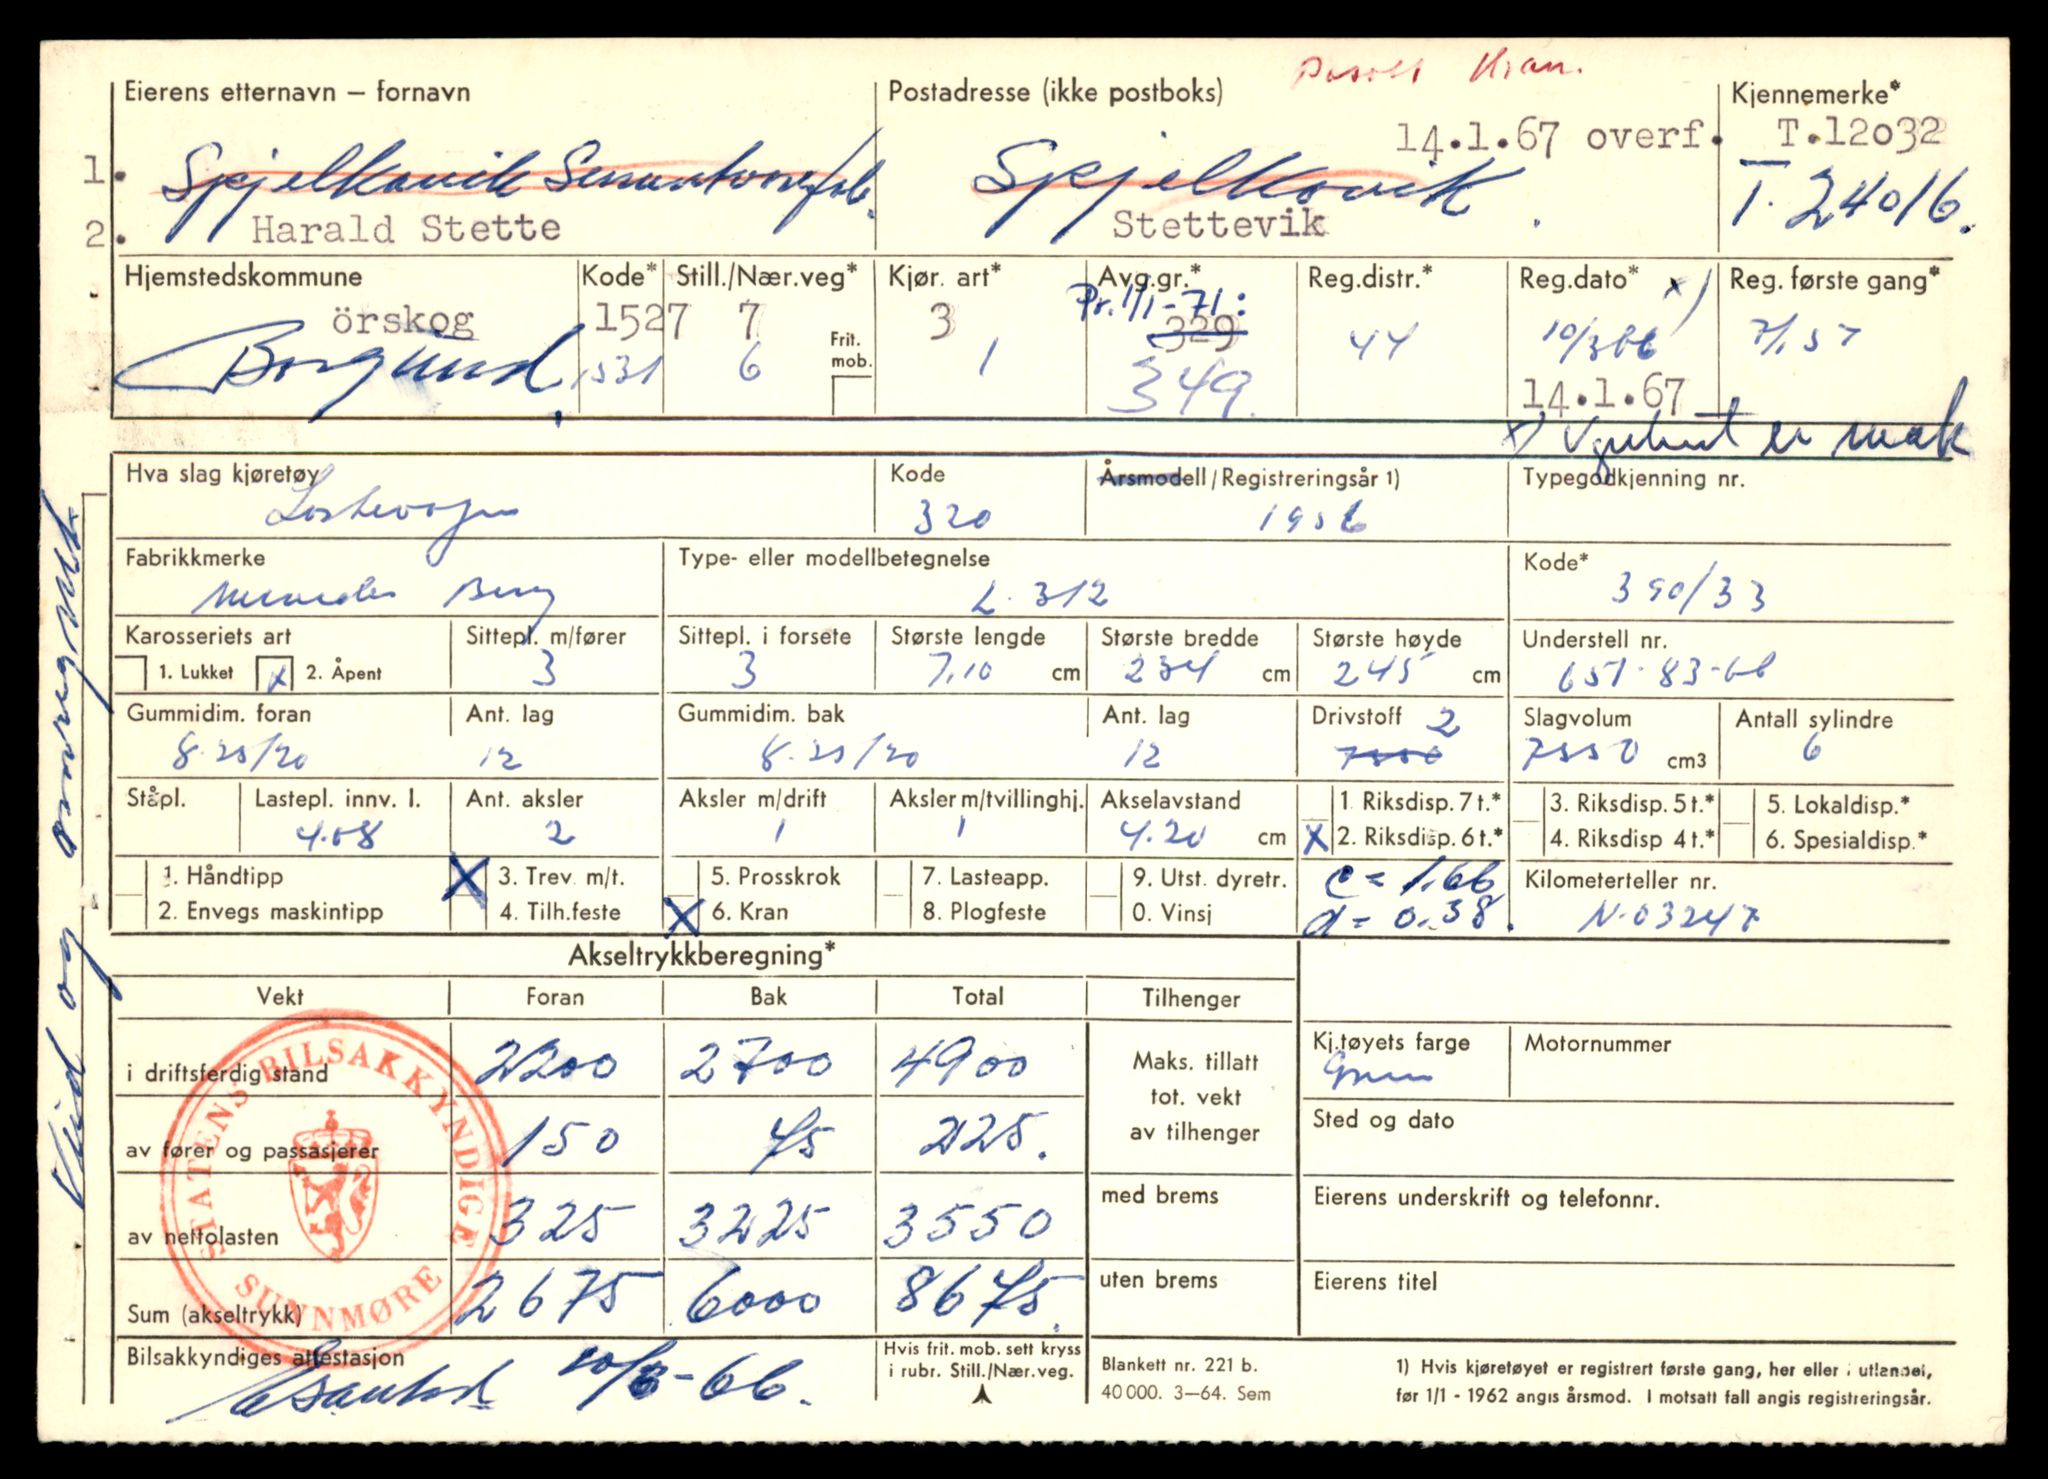 Påsatt Kran.
Eierens etternavn – fornavn Postadresse (ikke postboks) Kjennemerke*
14.1.67 overf. T.12032
1. Spjelkavik Sementvarefab. Spjelkavik. T. 24016.
2. Harald Stette Stettevik
Hjemstedskommune Kode* Still./Nær.veg* Kjør. art* Avg.gr.* Reg.distr.* Reg.dato* x) Reg. første gang*
Pr. 1/1-71:
örskog 1527 7 3 329
Frit. mob.
Borgund. 1531 6 1 349. 44 10/3 66 7/1 57
14.1.67
x) Vognkort er mak
Hva slag kjøretøy Kode Årsmodell/Registreringsår 1) Typegodkjenning nr.
Lastevogn 320 1956
Fabrikkmerke Type- eller modellbetegnelse Kode*
Mercedes Benz L. 312 390/33
Karosseriets art Sittepl. m/fører Sittepl. i forsete Største lengde Største bredde Største høyde Understell nr.
1. Lukket x 2. Åpent 3 3 7,10 cm 234 cm 245 cm 651-83-66
Gummidim. foran Ant. lag Gummidim. bak Ant. lag Drivstoff 2 Slagvolum Antall sylindre
8.25/20 12 8.25/20 12 7550 7550 cm3 6
Ståpl. Lastepl. innv. l. Ant. aksler Aksler m/drift Aksler m/tvillinghj. Akselavstand 1. Riksdisp. 7 t.* 3. Riksdisp. 5 t.* 5. Lokaldisp.*
4.08 2 1 1 4.20 cm X 2. Riksdisp. 6 t.* 4. Riksdisp 4 t.* 6. Spesialdisp.*
1. Håndtipp X 3. Trev. m/t. 5. Prosskrok 7. Lasteapp. 9. Utst. dyretr. c = 1.66 Kilometerteller nr.
2. Envegs maskintipp 4. Tilh.feste X 6. Kran 8. Plogfeste 0. Vinsj d = 0.38. N-03247
Akseltrykkberegning*
Vekt Foran Bak Total Tilhenger
i driftsferdig stand 2200 2700 4900 Maks. tillatt tot. vekt av tilhenger Kj.tøyets farge Motornummer
Grønn
av fører og passasjerer 150 75 225. Sted og dato
av nettolasten 325 3225 3550 med brems Eierens underskrift og telefonnr.
Sum (akseltrykk) 2675 6000 8675 uten brems Eierens titel
STATENS BILSAKKYNDIGE SUNNMØRE
Bilsakkyndiges attestasjon 10/3-66.
Hvis frit. mob. sett kryss
i rubr. Still./Nær.veg.
Blankett nr. 221 b.
40 000. 3—64. Sem
1) Hvis kjøretøyet er registrert første gang, her eller i utlandet,
før 1/1 - 1962 angis årsmod. I motsatt fall angis registreringsår.
og omregistr.